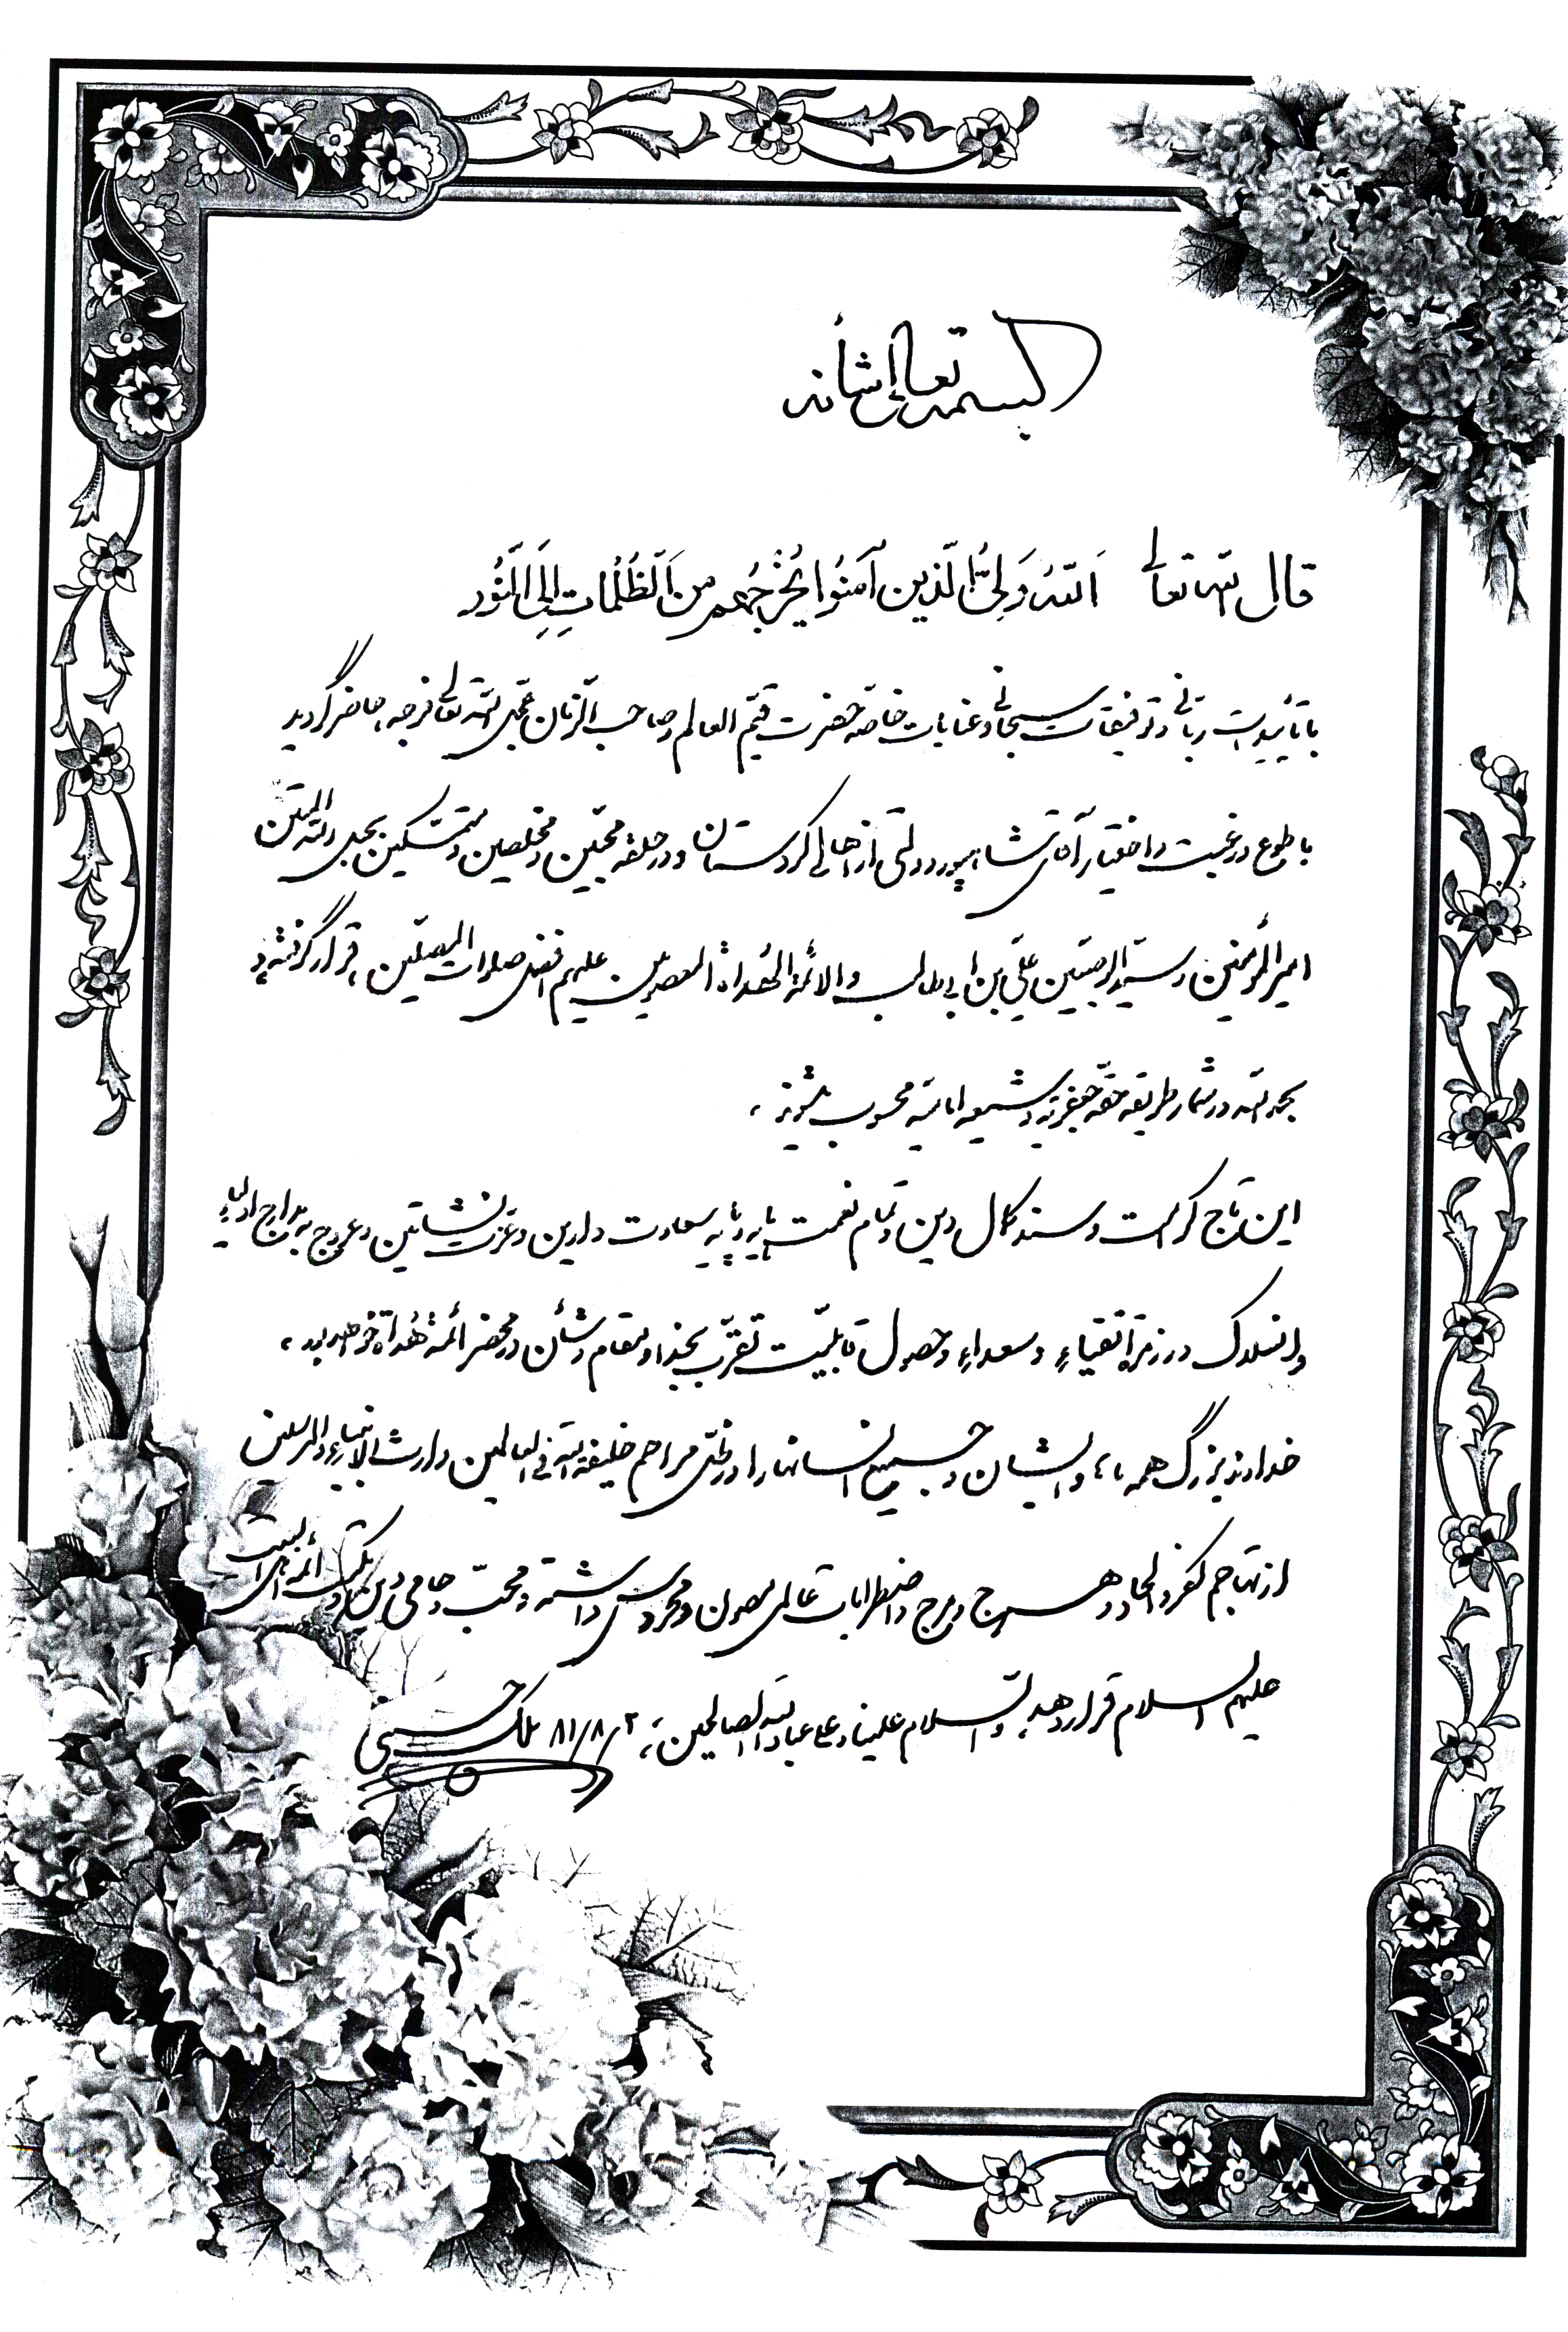 بسمه تعالی شأنه
قال الله تعالی اَللهُ وَلِیُّ الَّذین آمَنُوا یُخْرِجُهُم مِنَ الَظُّلُماتِ اِلَی الَنُّور
با تأییدات ربانی و توفیقات سبحانی و عنایات خاصّه حضرت قیّم العالم و صاحب الزّمان عجّل الله تعالی فرجه، حاضر گردید
با طوع و رغبت و اختیار آقای شاهپور دولتی از اهالی کردستان و در حلقه محبّین و مخلصین و متمسّکین بحبل الله المتین
امیرالمؤمنین و سیّد الوصیّین علیّ بن ابی طالب و الائمة الهُداة المعصومین علیهم افضل صلوات المصلّین، قرار گرفته و
بحمد الله در شمار طریقه حقّه جعفریّه و شیعه امامیّه محسوب میشوند،
این تاج کرامت و سند کمال دین و تمام نعمت پایه سعادت دارین و عزّت نشأتین و عروج به مدارج اولیاء
و انسلاک در زمرة اتقیاءِ و سعداءِ و حصول قابلیّت تقرّب بخدا و مقام و شأن در محضر ائمة هُداة خواهد بود،
خداوند بزرگ همه ماها و ایشان و جمیع انسانها را در ظلّ مراحم خلیفة الله فی العالمین وارث الانبیاء و المرسلین
از تهاجم کفر و الحاد و هرج و مرج و اضطرابات عالم مصون و محروس داشته و محبّ و حامی دین و مکتب ائمه اهل البیت
علیهم السلام قرار دهد، والسلام علینا و علی عباد الله الصالحین، ۸۱/۸/۲ ملک حسینی